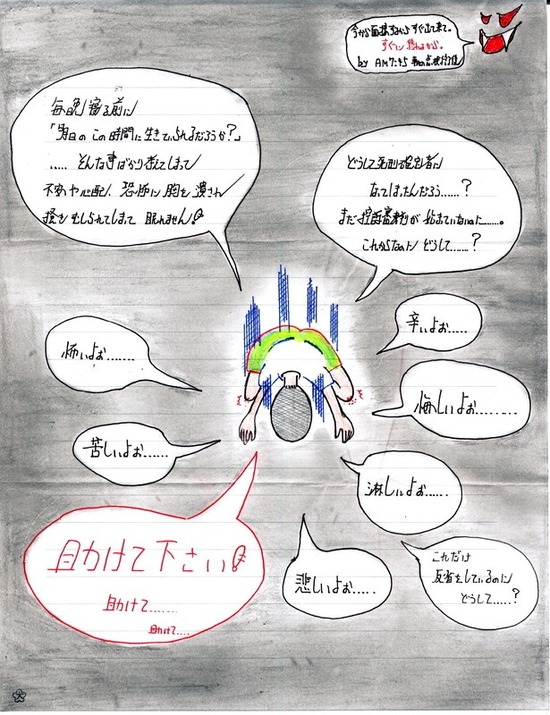 今から面接するから すぐ出て来て。
すぐに 終わるから。
by AM7:45
毎晩 寝る前に
「明日の この時間に 生きていられるだろうか?」
..... そんな事ばかり考えてしまって
不安や心配、恐怖に 胸を潰され
しられてしまって 眠れません
どうして死刑確定者に
なってしまったんだろう......?
まだ 再審 が 始まっていないのに......。
これからなのに どうして......?
辛いよぉ......
怖いよぉ.......
悔しいよぉ.........
苦しいよぉ......
淋しいよぉ......
助けて下さい
助けて.......
助けて....
悲しいよぉ.....
これだけ
反省をしているのに
どうして.....?